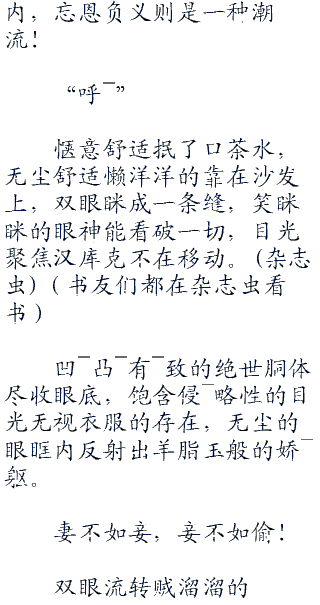 内，忘恩负义则是一种潮
流！
“呼¯”
惬意舒适抿了口茶水，
无尘舒适懒洋洋的靠在沙发
上，双眼眯成一条缝，笑眯
眯的眼神能看破一切，目光
聚焦汉库克不在移动。(杂志
虫)(书友们都在杂志虫看
书)
凹¯凸¯有¯致的绝世胴体
尽收眼底，饱含侵¯略性的目
光无视衣服的存在，无尘的
眼眶内反射出羊脂玉般的娇¯
躯。
妻不如妾，妾不如偷！
双眼流转贼溜溜的